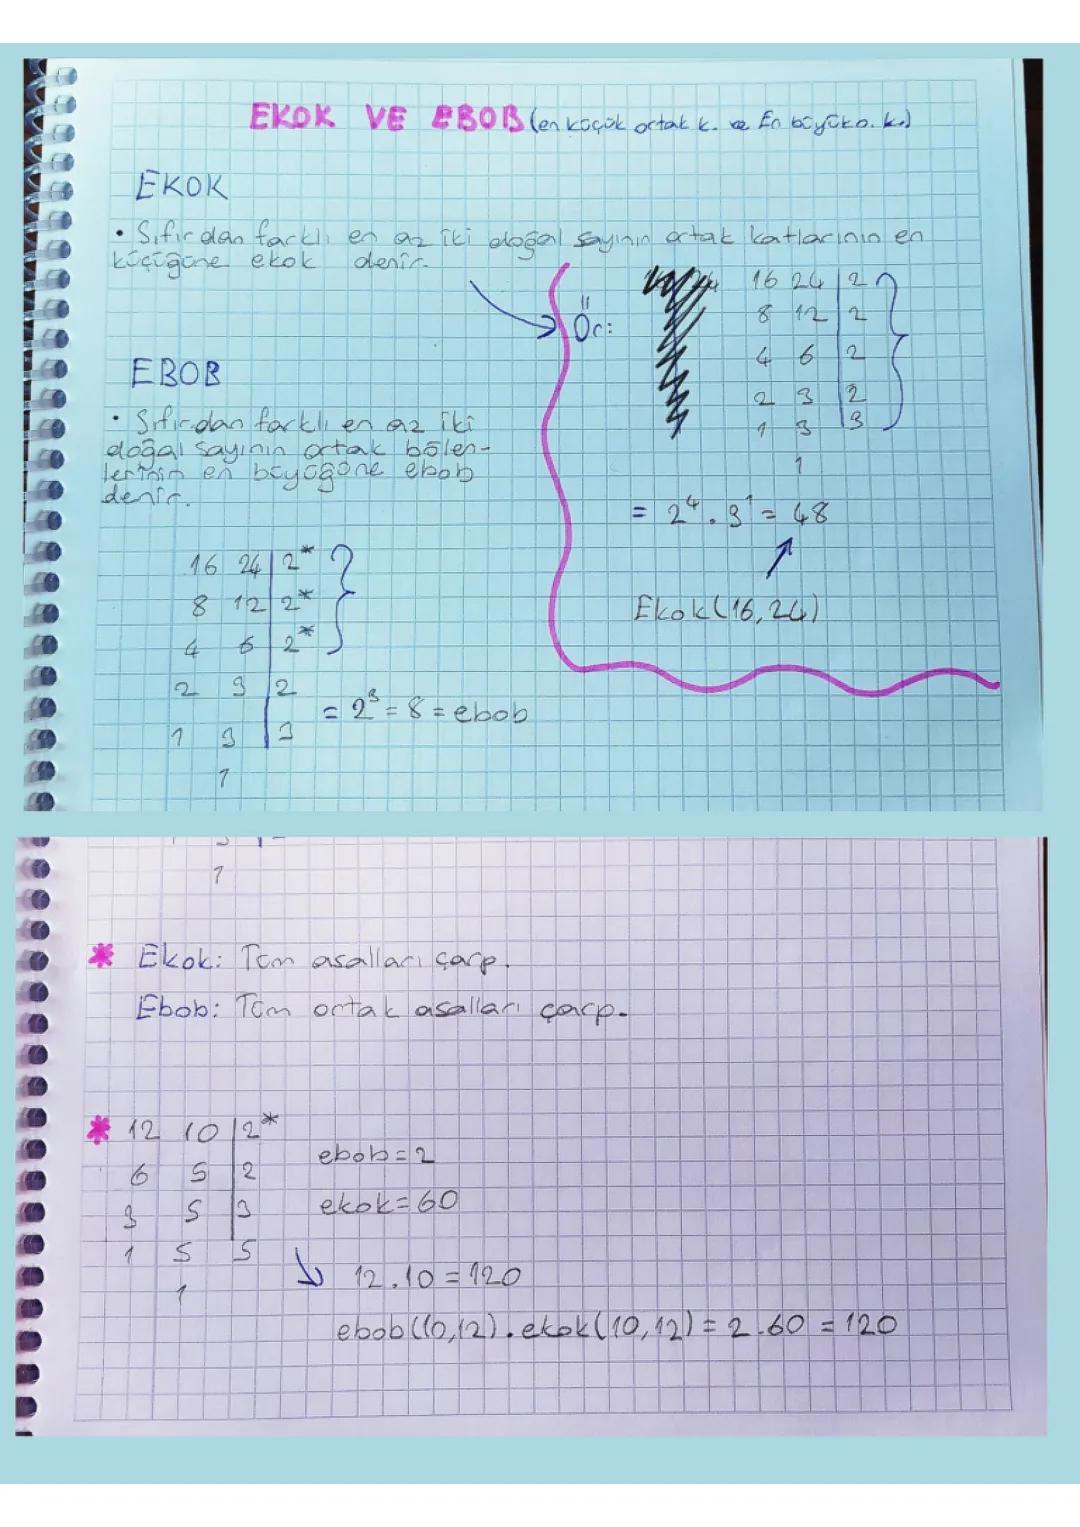 EKOK VE EBOB (en küçük ortak k. ve En büyük o. k.)
EKOK
• Sıfırdan farklı en az iki doğal sayının ortak katlarının en
küçüğüne ekok denir.
Ör:
16 24 | 2
8 12 | 2
4 6 | 2
2 3 | 2
1 3 | 3
1
= 2⁴ . 3¹ = 48
Ekok(16,24)
EBOB
• Sıfırdan farklı en az iki
doğal sayının ortak bölen-
lerinin en büyüğüne ebob
denir.
16 24 | 2*
8 12 | 2*
4 6 | 2*
2 3 | 2
1 3 | 3
1
= 2³ = 8 = ebob
1
* Ekok: Tüm asalları çarp.
Ebob: Tüm ortak asalları çarp.
* 12 10 | 2*
6 5 | 2
3 5 | 3
1 5 5
1
ebob = 2
ekok = 60
12 . 10 = 120
ebob(10,12) . ekok(10,12) = 2 . 60 = 120